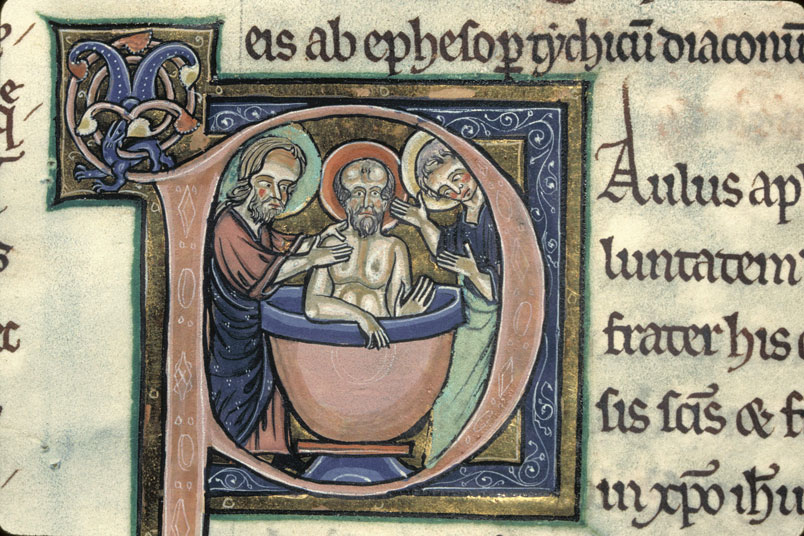 eis ab epheso ꝑ tẏchicū diaconū
P
Aulus ap
luntatem
frater his
sis sc̄is & f
in xp̄o ih̄u